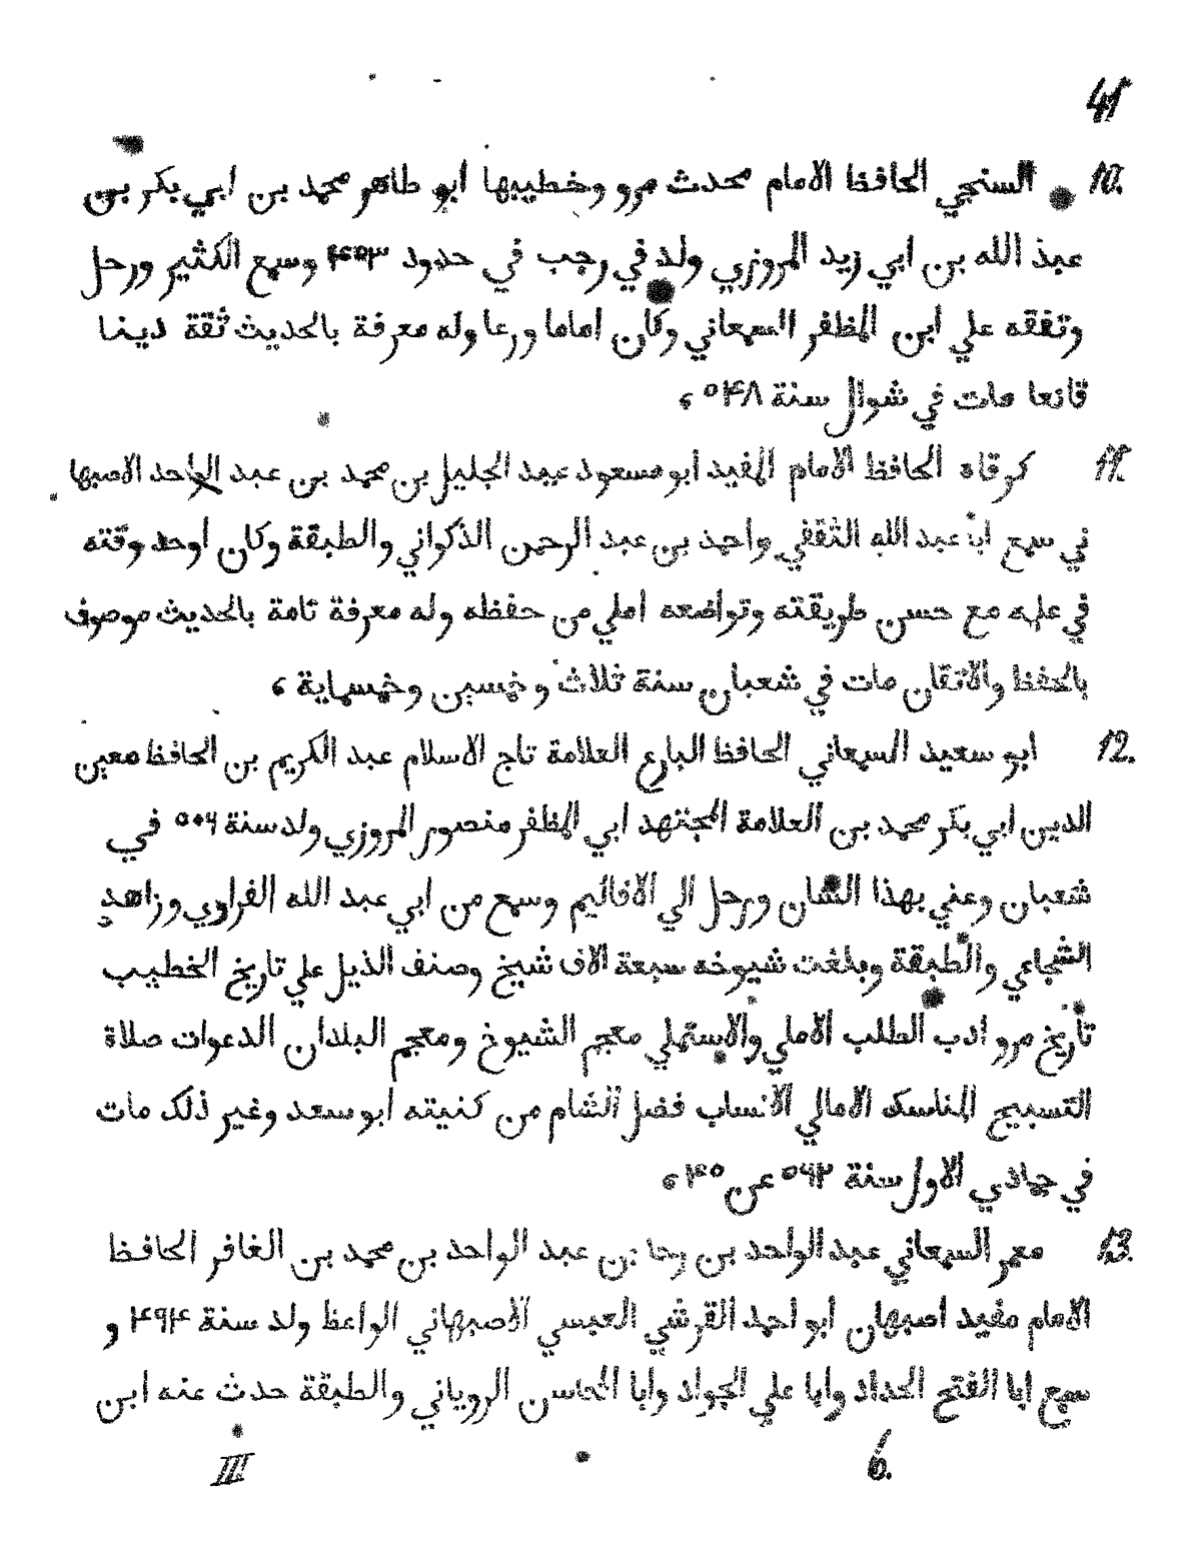 41
10. السنجي الحافظ الامام محدث مرو وخطيبها ابو طاهر محمد بن ابي بكر بن
عبد الله بن ابي زيد المروزي ولد في رجب في حدود ۴۵۳ وسمع الكثير ورحل
وتفقه علي ابن المظفر السمعاني وكان اماما ورعا وله معرفة بالحديث ثقة دينا
قانعا مات في شوال سنة ۵۴۸ ،
11. كرقاه الحافظ الامام المفيد ابو مسعود عبد الجليل بن محمد بن عبد الواحد الاصبها
ني سمع ابا عبد الله الثقفي واحمد بن عبد الرحمن الذكواني والطبقة وكان اوحد وقته
في علمه مع حسن طريقته وتواضعه املي من حفظه وله معرفة تامة بالحديث موصوف
بالحفظ والاتقان مات في شعبان سنة ثلاث وخمسين وخمسماية ،
12. ابو سعيد السمعاني الحافظ البارع العلامة تاج الاسلام عبد الكريم بن الحافظ معين
الدين ابي بكر محمد بن العلامة المجتهد ابي المظفر منصور المروزي ولد سنة ۵۰۶ في
شعبان وعني بهذا الشان ورحل الي الاقاليم وسمع من ابي عبد الله الفراوي وزاهد
الشجاعي والطبقة وبلغت شيوخه سبعة الاف شيخ وصنف الذيل علي تاريخ الخطيب
تاريخ مرو ادب الطلب الاملي والاستملي معجم الشيوخ ومعجم البلدان الدعوات صلاة
التسبيح المناسك الامالي الانساب فضل الشام من كنيته ابو سعد وغير ذلك مات
في جمادي الاول سنة ۵۶۲ عن ۴۵ ،
13. معمر السمعاني عبد الواحد بن رجا بن عبد الواحد بن محمد بن الغافر الحافظ
الامام مفيد اصبهان ابو احمد القرشي العبسي الاصبهاني الواعظ ولد سنة ۴۹۴ و
سمع ابا الفتح الحداد وابا علي الجواد وابا المحاسن الروياني والطبقة حدث عنه ابن
III 6.